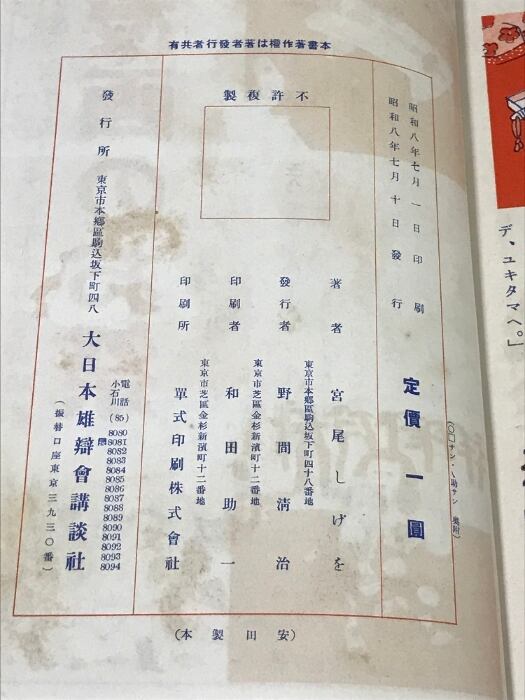 本書著作權は著者發行者共有
昭和八年七月一日印刷
昭和八年七月十日發行
定價一圓
(〇□サン・八助サン 奧附)
不許複製
著者 宮尾しげを
東京市本鄕區駒込坂下町四十八番地
發行者 野間淸治
東京市芝區金杉新濱町十二番地
印刷者 和田助一
東京市芝區金杉新濱町十二番地
印刷所 單式印刷株式會社
發行所 東京市本鄕區駒込坂下町四八
大日本雄辯會講談社
電話
小石川
(85)
8080
8081
8082
8083
8084
8085
8086
8087
8088
8089
8090
8091
8092
8093
8094
(振替口座東京三九三〇番)
(安田製本)
デ、ユキタマヘ。」